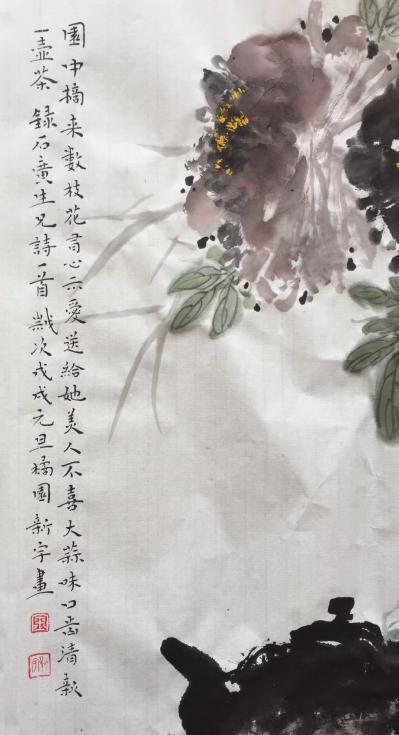 園中摘来數枝花心示愛送給她美人不喜大蒜味口齒清新
一壺茶 錄石廣生兄詩一首 歲次戊戌元旦橘園新宇畫